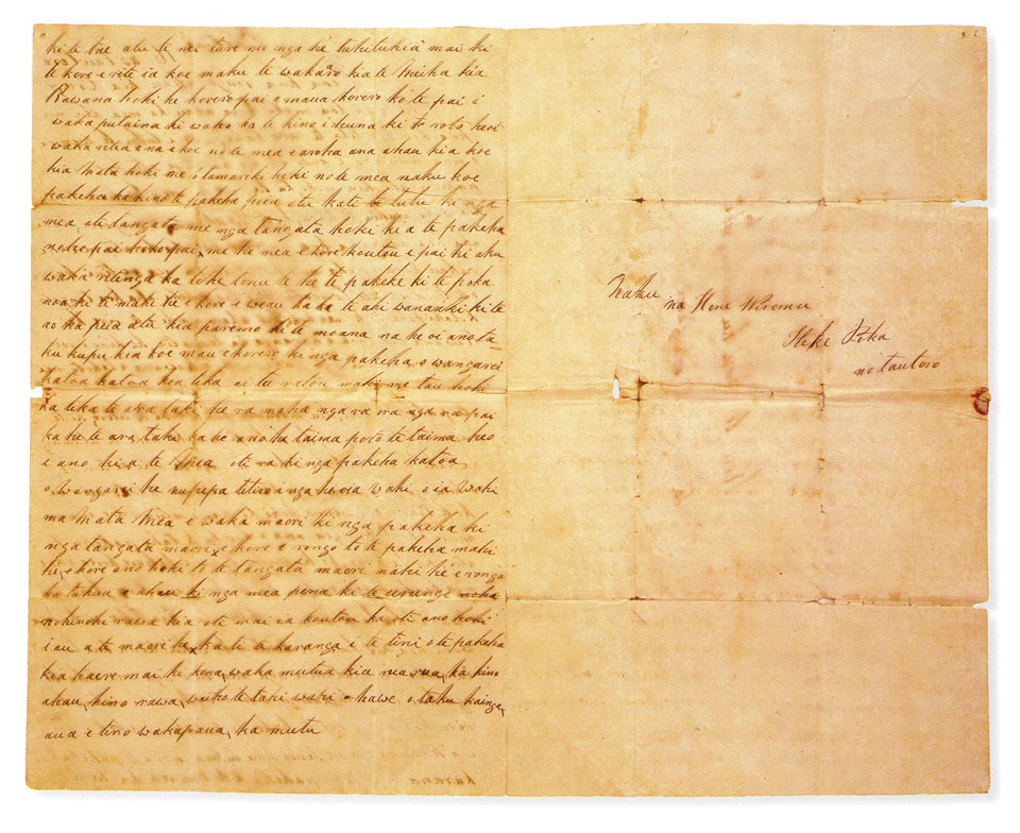 ki te tae atu te nei ture me nga he tukitukia mai ki
te kore e rite ia koe maku te wakaro kia te Meiha kia
Kawana hoki he korero pai e maua korero ko te pai i
waka putaina ki waho ko te kino i huna ki roto heoi
waka ritea ena e koe no te mea e aroha ana ahau kia koe
kia Mata hoki me o tamariki hoki no te mea naku koe
pakeha ka kino te pakeha peia atu kati te tutu ki nga
mea ote tangata me nga tangata hoki ki a te pakeha
pai hoki pai, me he mea e kore koutou e pai ki aku
waka ritenga ka tohe tonu te ha te pakeke ki te poka
noa ki te mahi he e kore e weau ka ka te ahi wanariki ki te
ao ka peia atu kia paremo ki te moana na heoi ano ta
ku kupu kia koe mau e korero ki nga pakeha o wangarei
katoa katoa kia tika ai te mahi me tau hoki
na tika te ara taki he ra maha nga ra ra nga ra pai
ka he te ara taku ka he ano ka taima poto te taima heo
i ano ki a te Mea ote ra ki nga pakeha katoa
o wangarei he nupepa titiro i nga he oia waki o ia waki
ma Mata Mea e waka maori ki nga pakeha ki
nga tangata maori, e kore e rongo to te pakeha mahi
he, e kore ano hoki to te tangata maori mahi he e rongo
ko tahua e ahau ki nga mea pena ki te urunga
nohinohi rawa kia ote mai ia koutou ka ote ano hoki
i au a te maori ka, ka te te karanga i te tini o te pakeha
kia haere mai ki kona, waka mutua kia rua rua, ka kino
ahau, kino rawa, waiho te tahi wahi o hawe o taku kainga,
aua e tino wakapaua, ka mutu
Naku na Hone Wiremu
Heke Poka
no tautoro